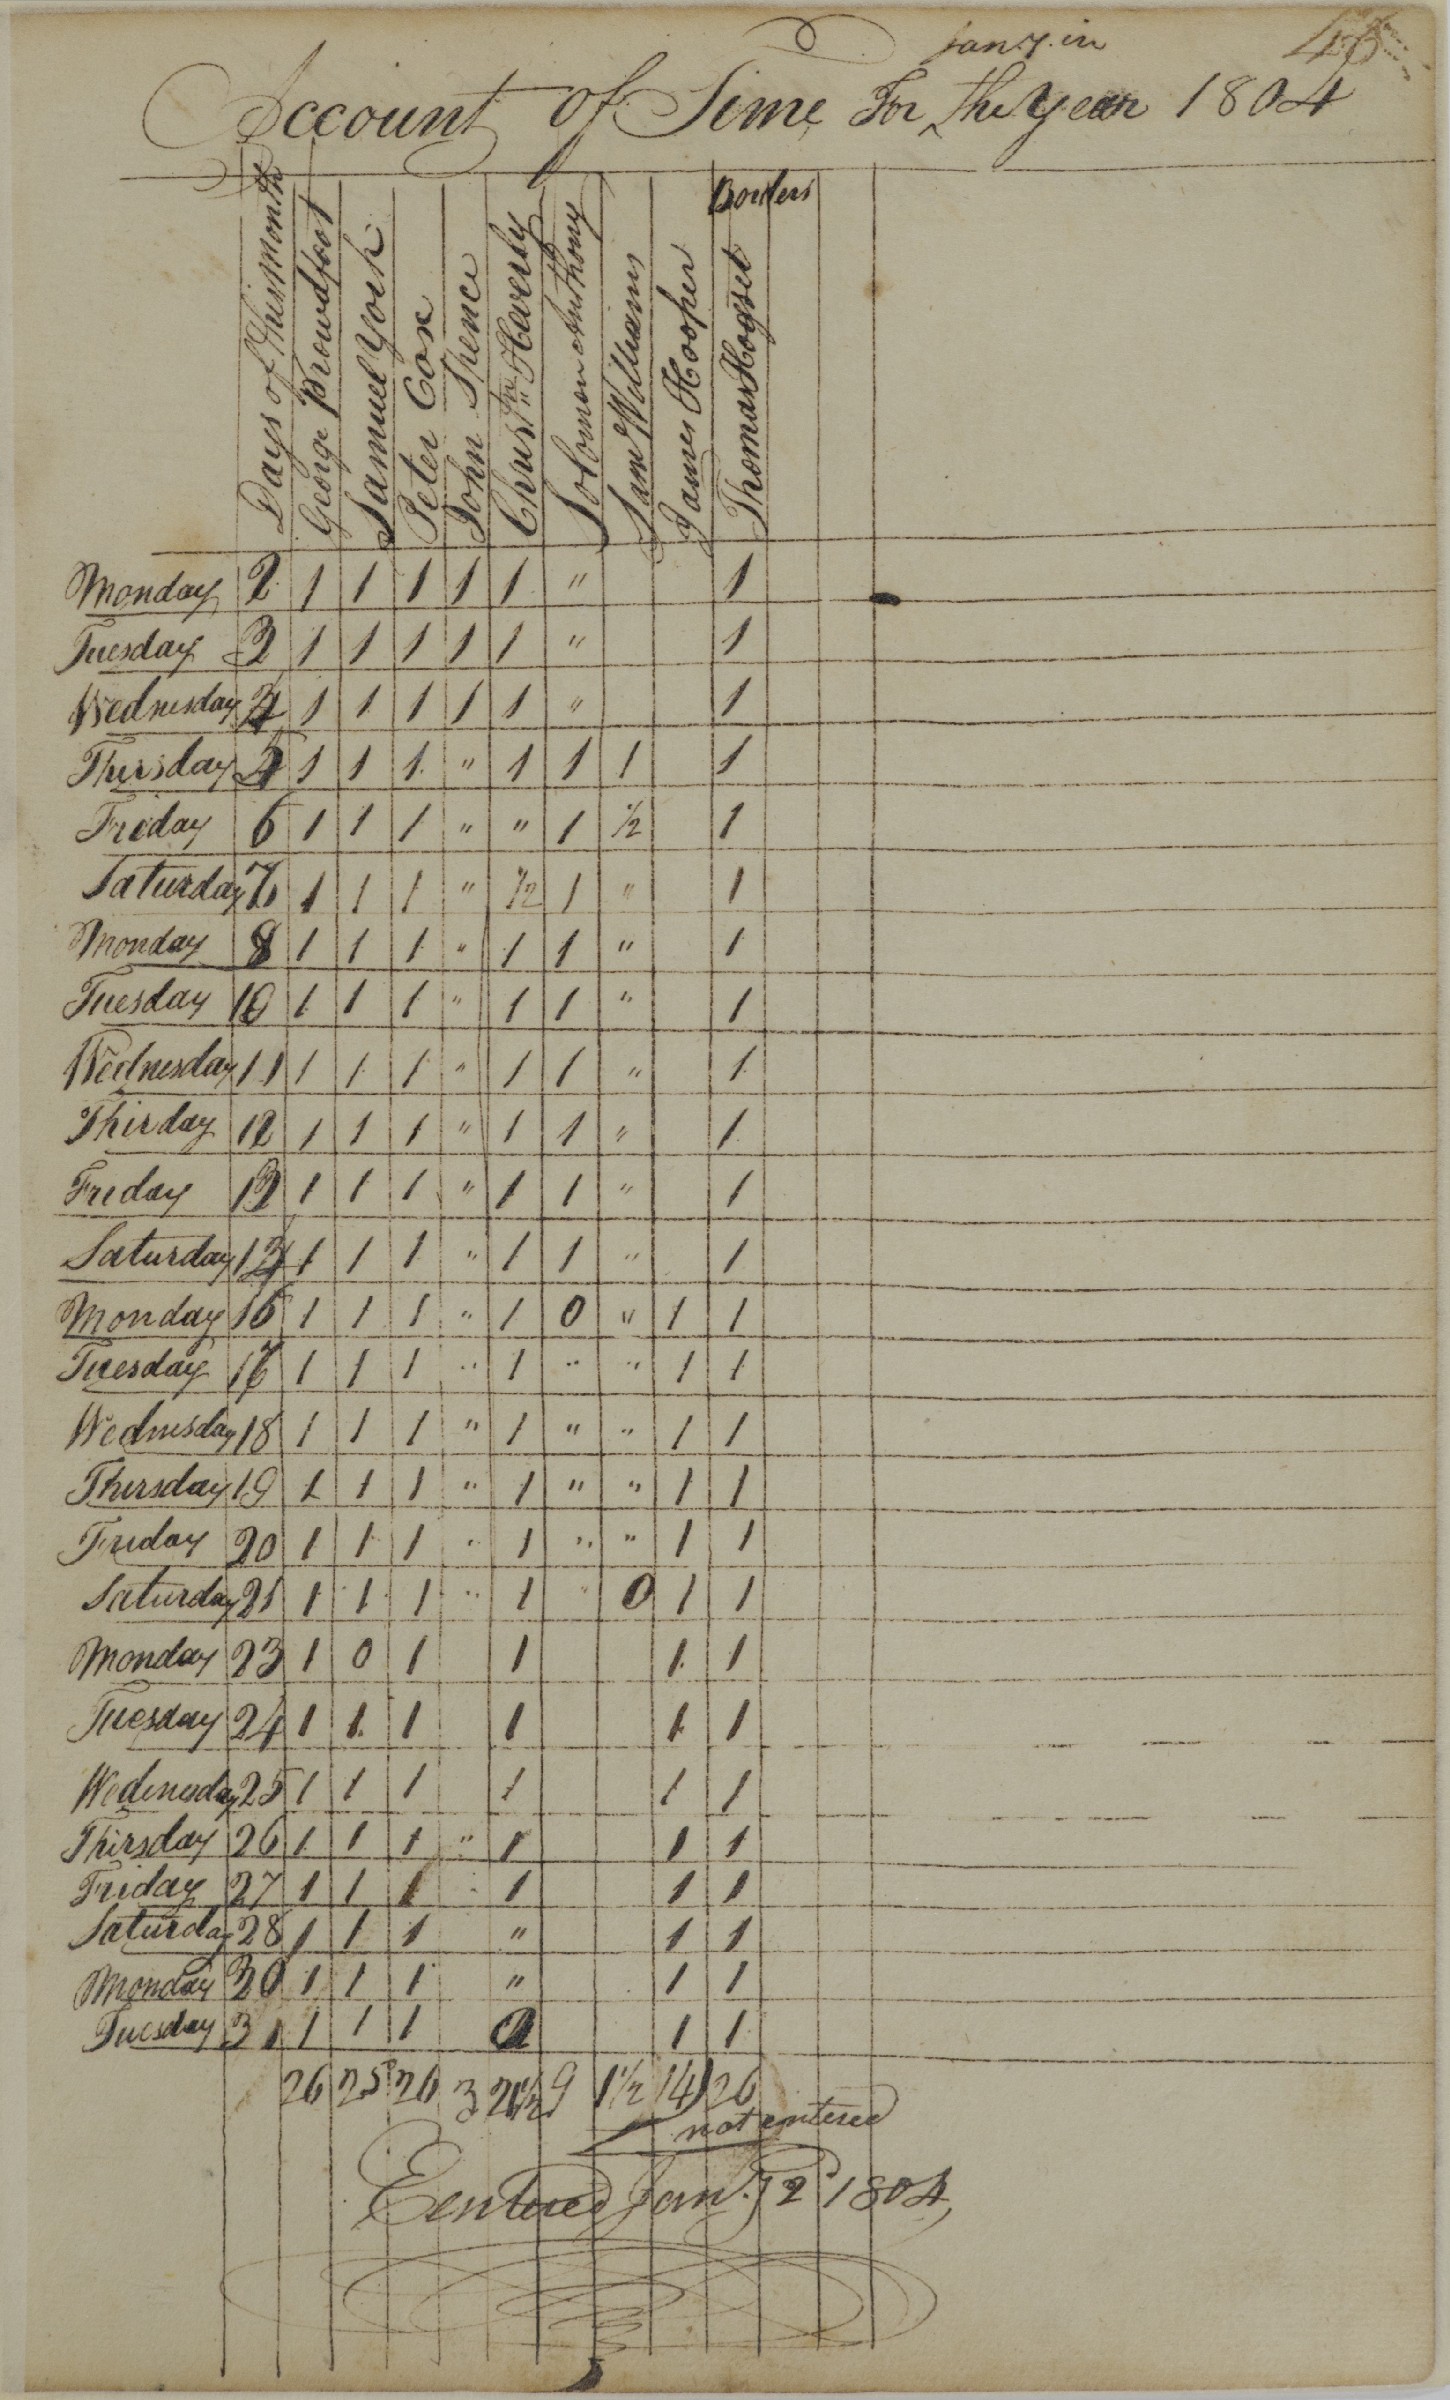 Jany. in
46
Account of Time For the Year 1804
Borders
Days of this Month George Prowdfoot Samuel York Peter Cox John Spence Christn Haverly Solomon Anthony Sam Williams James Hooper Thomas Hogset
Monday 2 1 1 1 1 1 " 1
Tuesday 3 1 1 1 1 1 " 1
Wednesday 4 1 1 1 1 1 " 1
Thirsday 5 1 1 1 " 1 1 1 1
Friday 6 1 1 1 " " 1 1/2 1
Saturday 7 1 1 1 " 1/2 1 " 1
Monday 9 1 1 1 " 1 1 " 1
Tuesday 10 1 1 1 " 1 1 " 1
Wednesday 11 1 1 1 " 1 1 " 1
Thirday 12 1 1 1 " 1 1 " 1
Friday 13 1 1 1 " 1 1 " 1
Saturday 14 1 1 1 " 1 1 " 1
Monday 16 1 1 1 " 1 0 " 1 1
Tuesday 17 1 1 1 " 1 " " 1 1
Wednesday 18 1 1 1 " 1 " " 1 1
Thirsday 19 1 1 1 " 1 " " 1 1
Friday 20 1 1 1 " 1 " " 1 1
Saturday 21 1 1 1 " 1 " 0 1 1
Monday 23 1 0 1 1 1 1
Tuesday 24 1 1 1 1 1 1
Wedenesday 25 1 1 1 1 1 1
Thirsday 26 1 1 1 " 1 1 1
Friday 27 1 1 1 " 1 1 1
Saturday 28 1 1 1 " 1 1
Monday 30 1 1 1 " 1 1
Tuesday 31 1 1 1 1 1
26 25 26 3 21 1/2 9 1 1/2 14 26
not entered
Eentured Jany. 2 1804